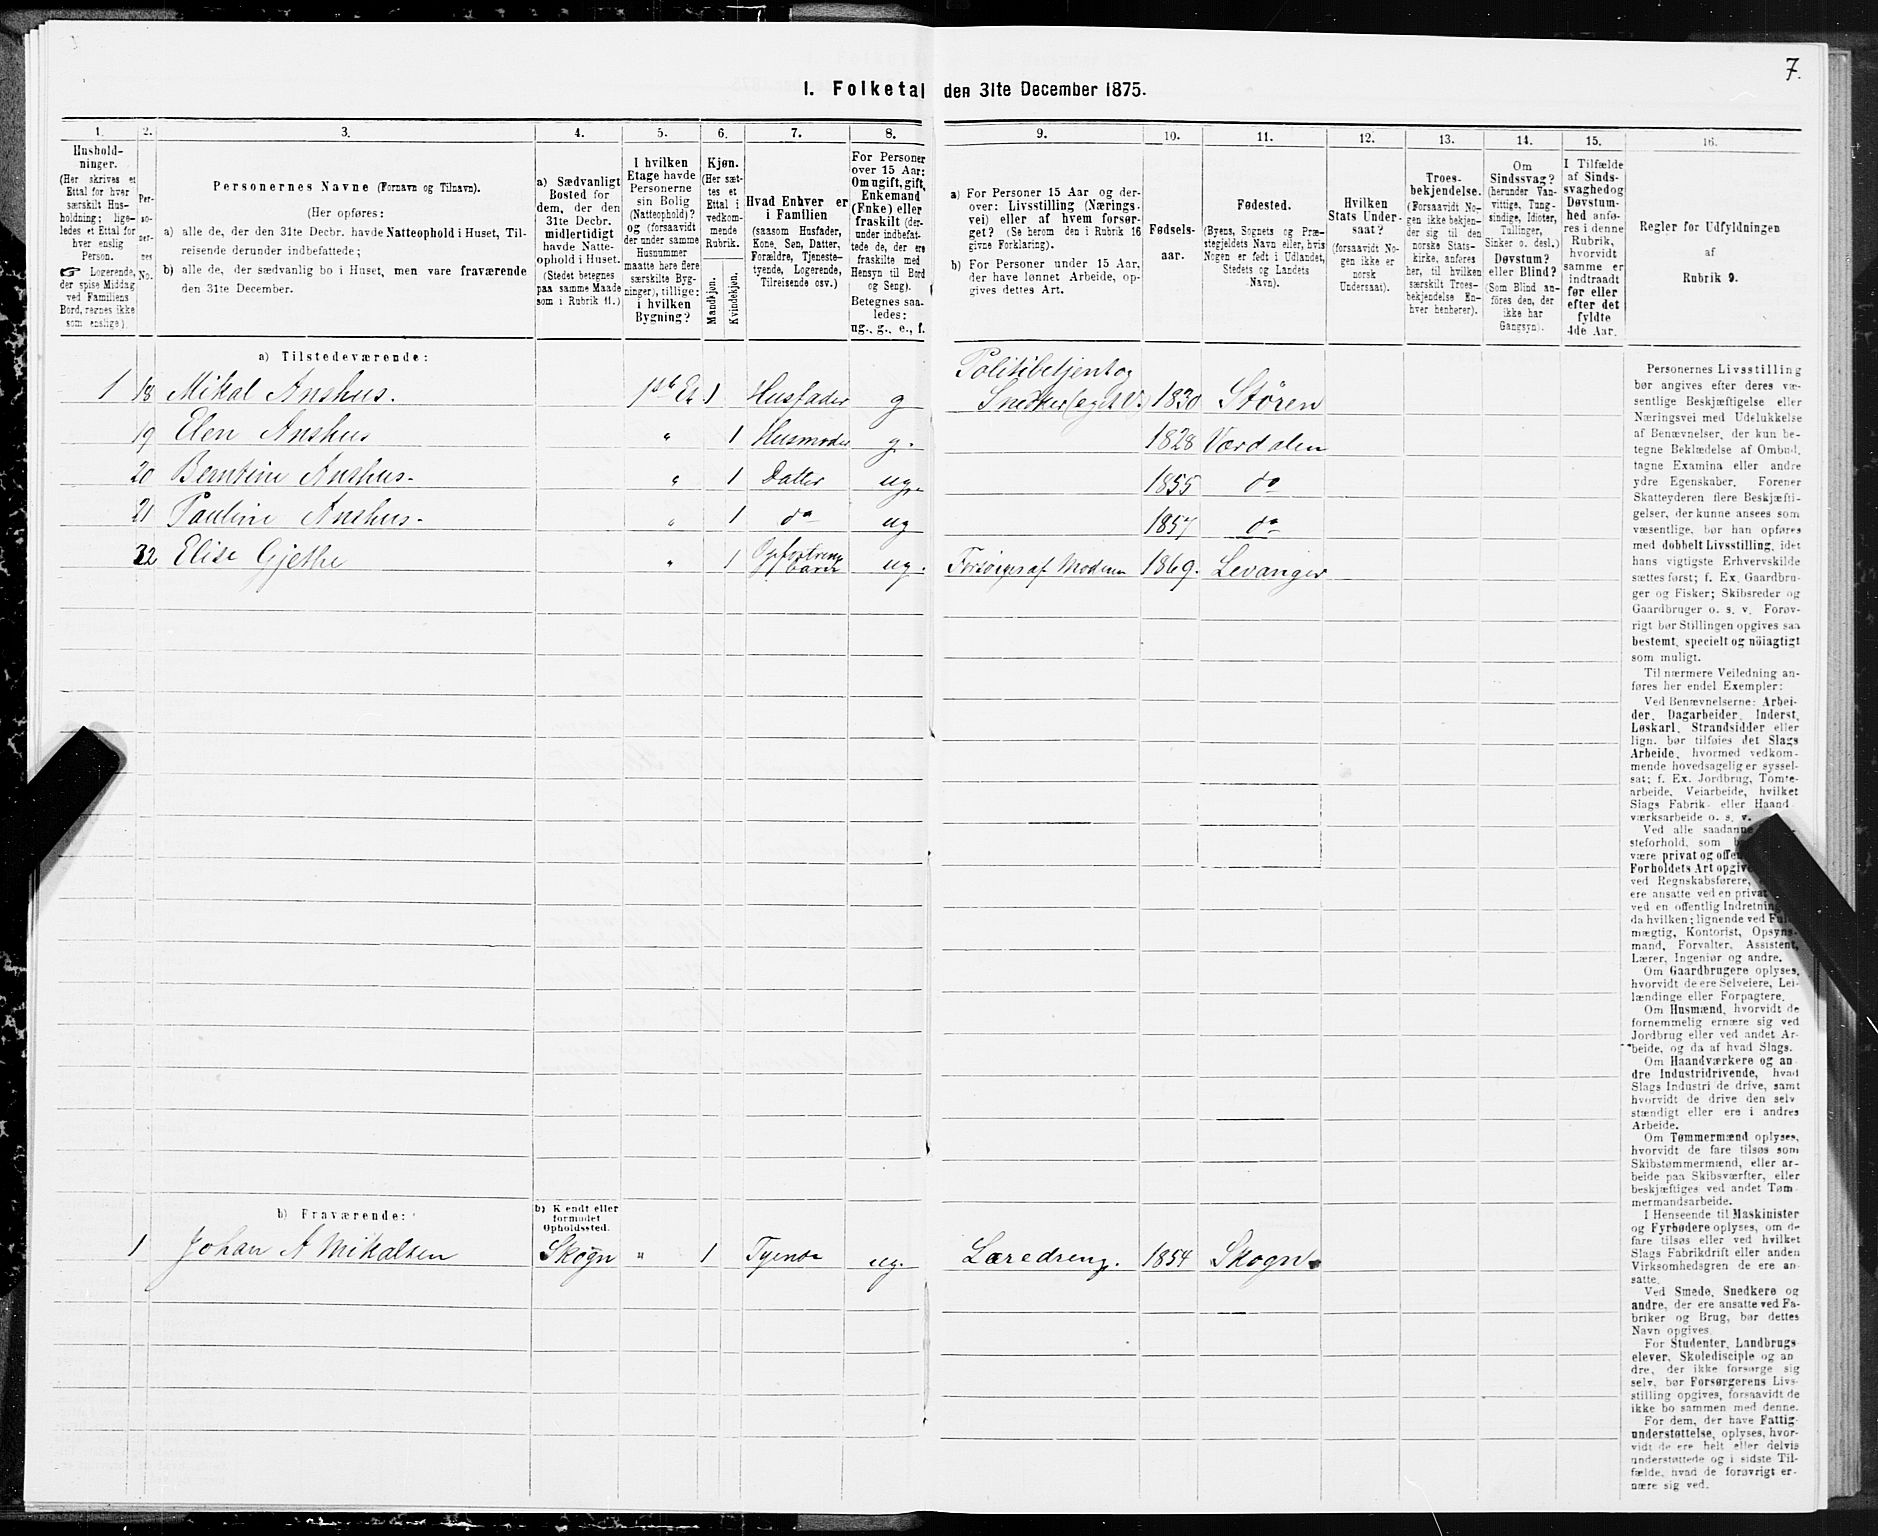 7.
I. Folketal den 31te December 1875.
1. 2. 3. 4. 5. 6. 7. 8. 9. 10. 11. 12. 13. 14. 15. 16.
Hushold-
ninger.
(Her skrives et
Ettal for hver
særskilt Hus-
holdning; lige-
ledes et Ettal for
hver enslig
Person.
☞ Logerende,
der spise Middag
ved Familiens
Bord, regnes ikke
som enslige).
Per-
so-
ner-
nes
No.
Personernes Navne (Fornavn og Tilnavn).
(Her opføres:
a) alle de, der den 31te Decbr. havde Natteophold i Huset, Til-
reisende derunder indbefattede;
b) alle de, der sædvanlig bo i Huset, men vare fraværende
den 31te December.
a) Sædvanligt
Bosted for
dem, der den
31te Decbr.
midlertidigt
havde Natte-
ophold i Huset.
(Stedet betegnes
paa samme Maade
som i Rubrik 11.)
I hvilken
Etage havde
Personerne
sin Bolig
(Natteophold)?
og (forsaavidt
der under samme
Husnummer
maatte høre flere
særskilte Byg-
ninger), tillige:
i hvilken
Bygning?
Kjøn.
(Her sæt-
tes et
Ettal i
vedkom-
mende
Rubrik.
Mandkjøn.
Kvindekjøn.
Hvad Enhver er
i Familien
(saasom Husfader,
Kone, Søn, Datter,
Forældre, Tjeneste-
tyende, Logerende,
Tilreisende osv.)
For Personer
over 15 Aar:
Om ugift, gift,
Enkemand
(Enke) eller
fraskilt (der-
under indbefat-
tede de, der ere
fraskilte med
Hensyn til Bord
og Seng).
Betegnes saa-
ledes:
ug., g., e., f.
a) For Personer 15 Aar og der-
over: Livsstilling (Nærings-
vei) eller af hvem forsør-
get? (Se herom den i Rubrik 16
givne Forklaring).
b) For Personer under 15 Aar,
der have lønnet Arbeide, op-
gives dettes Art.
Fødsels-
aar.
Fødested.
(Byens, Sognets og Præ-
stegjeldets Navn eller, hvis
Nogen er født i Udlandet,
Stedets og Landets
Navn).
Hvilken
Stats Under-
saat?
(forsaavidt No-
gen ikke er
norsk
Undersaat).
Troes-
bekjendelse.
(Forsaavidt No-
gen ikke bekjen-
der sig til den
norske Stats-
kirke, anføres
her, til hvilken
særskilt Troes-
bekjendelse En-
hver henhører).
Om
Sindssvag?
(herunder Van-
vittige, Tung-
sindige, Idioter,
Tullinger,
Sinker o. desl.)
Døvstum?
eller Blind?
(Som Blind an-
føres den, der
ikke har
Gangsyn).
I Tilfælde
af Sinds-
svaghed og
Døvstum-
hed anfø-
res i denne
Rubrik,
hvorvidt
samme er
indtraadt
før eller
efter det
fyldte
4de Aar.
Regler for Udfyldningen
af
Rubrik 9.
a) Tilstedeværende:
1 18 Mikal Anshus. 1ste Et. 1 Husfader g Politibetjent og
Snedker 1830 Støren
19 Elen Anshus " 1 Husmoder g. 1828 Værdalen
20 Berntine Anshus. " 1 Datter ug. 1855 do
21 Pauline Anshus. " 1 do ug 1857 do
22 Elise Gjethe " 1 Opfostrings
barn ug. Forsørges af Moderen 1869. Levanger
b) Fraværende:
b) Kjendt eller
formodet
Opholdssted.
1 Johan A Mikalsen Skogn " 1 Tyende ug. Læredreng. 1854 Skogn.
Personernes Livsstilling
bør angives efter deres væ-
sentlige Beskjæftigelse eller
Næringsvei med Udelukkelse
af Benævnelser, der kun be-
tegne Beklædelse af Ombud,
tagne Examina eller andre
ydre Egenskaber. Forener
Skatteyderen flere Beskjæfti-
gelser, der kunne ansees som
væsentlige, bør han opføres
med dobbelt Livsstilling, idet
hans vigtigste Erhvervskilde
sættes først; f. Ex. Gaardbru-
ger og Fisker; Skibsreder og
Gaardbruger o. s. v. Forøv-
rigt bør Stillingen opgives saa
bestemt, specielt og nöiagtigt
som muligt.
Til nærmere Veiledning an-
føres her endel Exempler:
Ved Benævnelserne: Arbei-
der, Dagarbeider, Inderst,
Løskarl, Strandsidder eller
lign. bør tilføies det Slags
Arbeide, hvormed vedkom-
mende hovedsagelig er syssel-
sat; f. Ex. Jordbrug, Tomte-
arbeide, Veiarbeide, hvilket
Slags Fabrik- eller Haand-
værksarbeide o. s. v.
Ved alle saadanne
steforhold, som
være privat og offen
Forholdets Art opgive
ved Regnskabsførere,
ere ansatte ved en privat
ved en offentlig Indretning
da hvilken; lignende ved Ful-
mægtig, Kontorist, Opsyns-
mand, Forvalter, Assistent,
Lærer, Ingeniør og andre.
Om Gaardbrugere oplyses,
hvorvidt de ere Selveiere, Lei-
lændinge eller Forpagtere.
Om Husmænd, hvorvidt de
fornemmelig ernære sig ved
Jordbrug eller ved andet Ar-
beide, og da af hvad Slags.
Om Haandværkere og an-
dre Industridrivende, hvad
Slags Industri de drive, samt
hvorvidt de drive den selv-
stændigt eller ere i andres
Arbeide.
Om Tømmermænd oplyses,
hvorvidt de fare tilsøs som
Skibstømmermænd, eller ar-
beide paa Skibsværfter, eller
beskjæftiges ved andet Tøm-
mermandsarbeide.
I Henseende til Maskinister
og Fyrbødere oplyses, om de
fare tilsøs eller ved hvilket
Slags Fabrikdrift eller anden
Virksomhedsgren de ere an-
satte.
Ved Smede, Snedkere og
andre, der ere ansatte ved Fa-
briker og Brug, bør dettes
Navn opgives.
For Studenter, Landbrugs-
elever, Skoledisciple og an-
dre, der ikke forsørge sig
selv, bør Forsørgerens Livs-
stilling opgives, forsaavidt de
ikke bo sammen med denne.
For dem, der have Fattig-
understøttelse, oplyses, hvor-
vidt de ere helt eller delvis
understøttede og i sidste Til-
fælde, hvad de forøvrigt er-
nære sig ved.